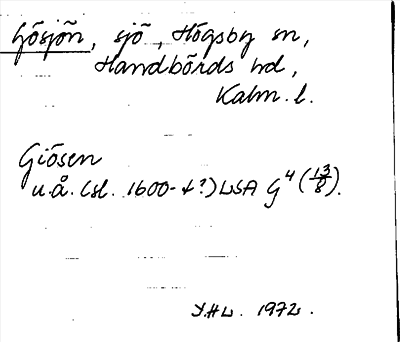 Gösjön, sjö, Högsby sn,
Handbörds hd,
Kalm. l.
Giösen
u.å. (sl. 1600-t?) LSA G⁴ (13/8).
Y.H.L. 1972.